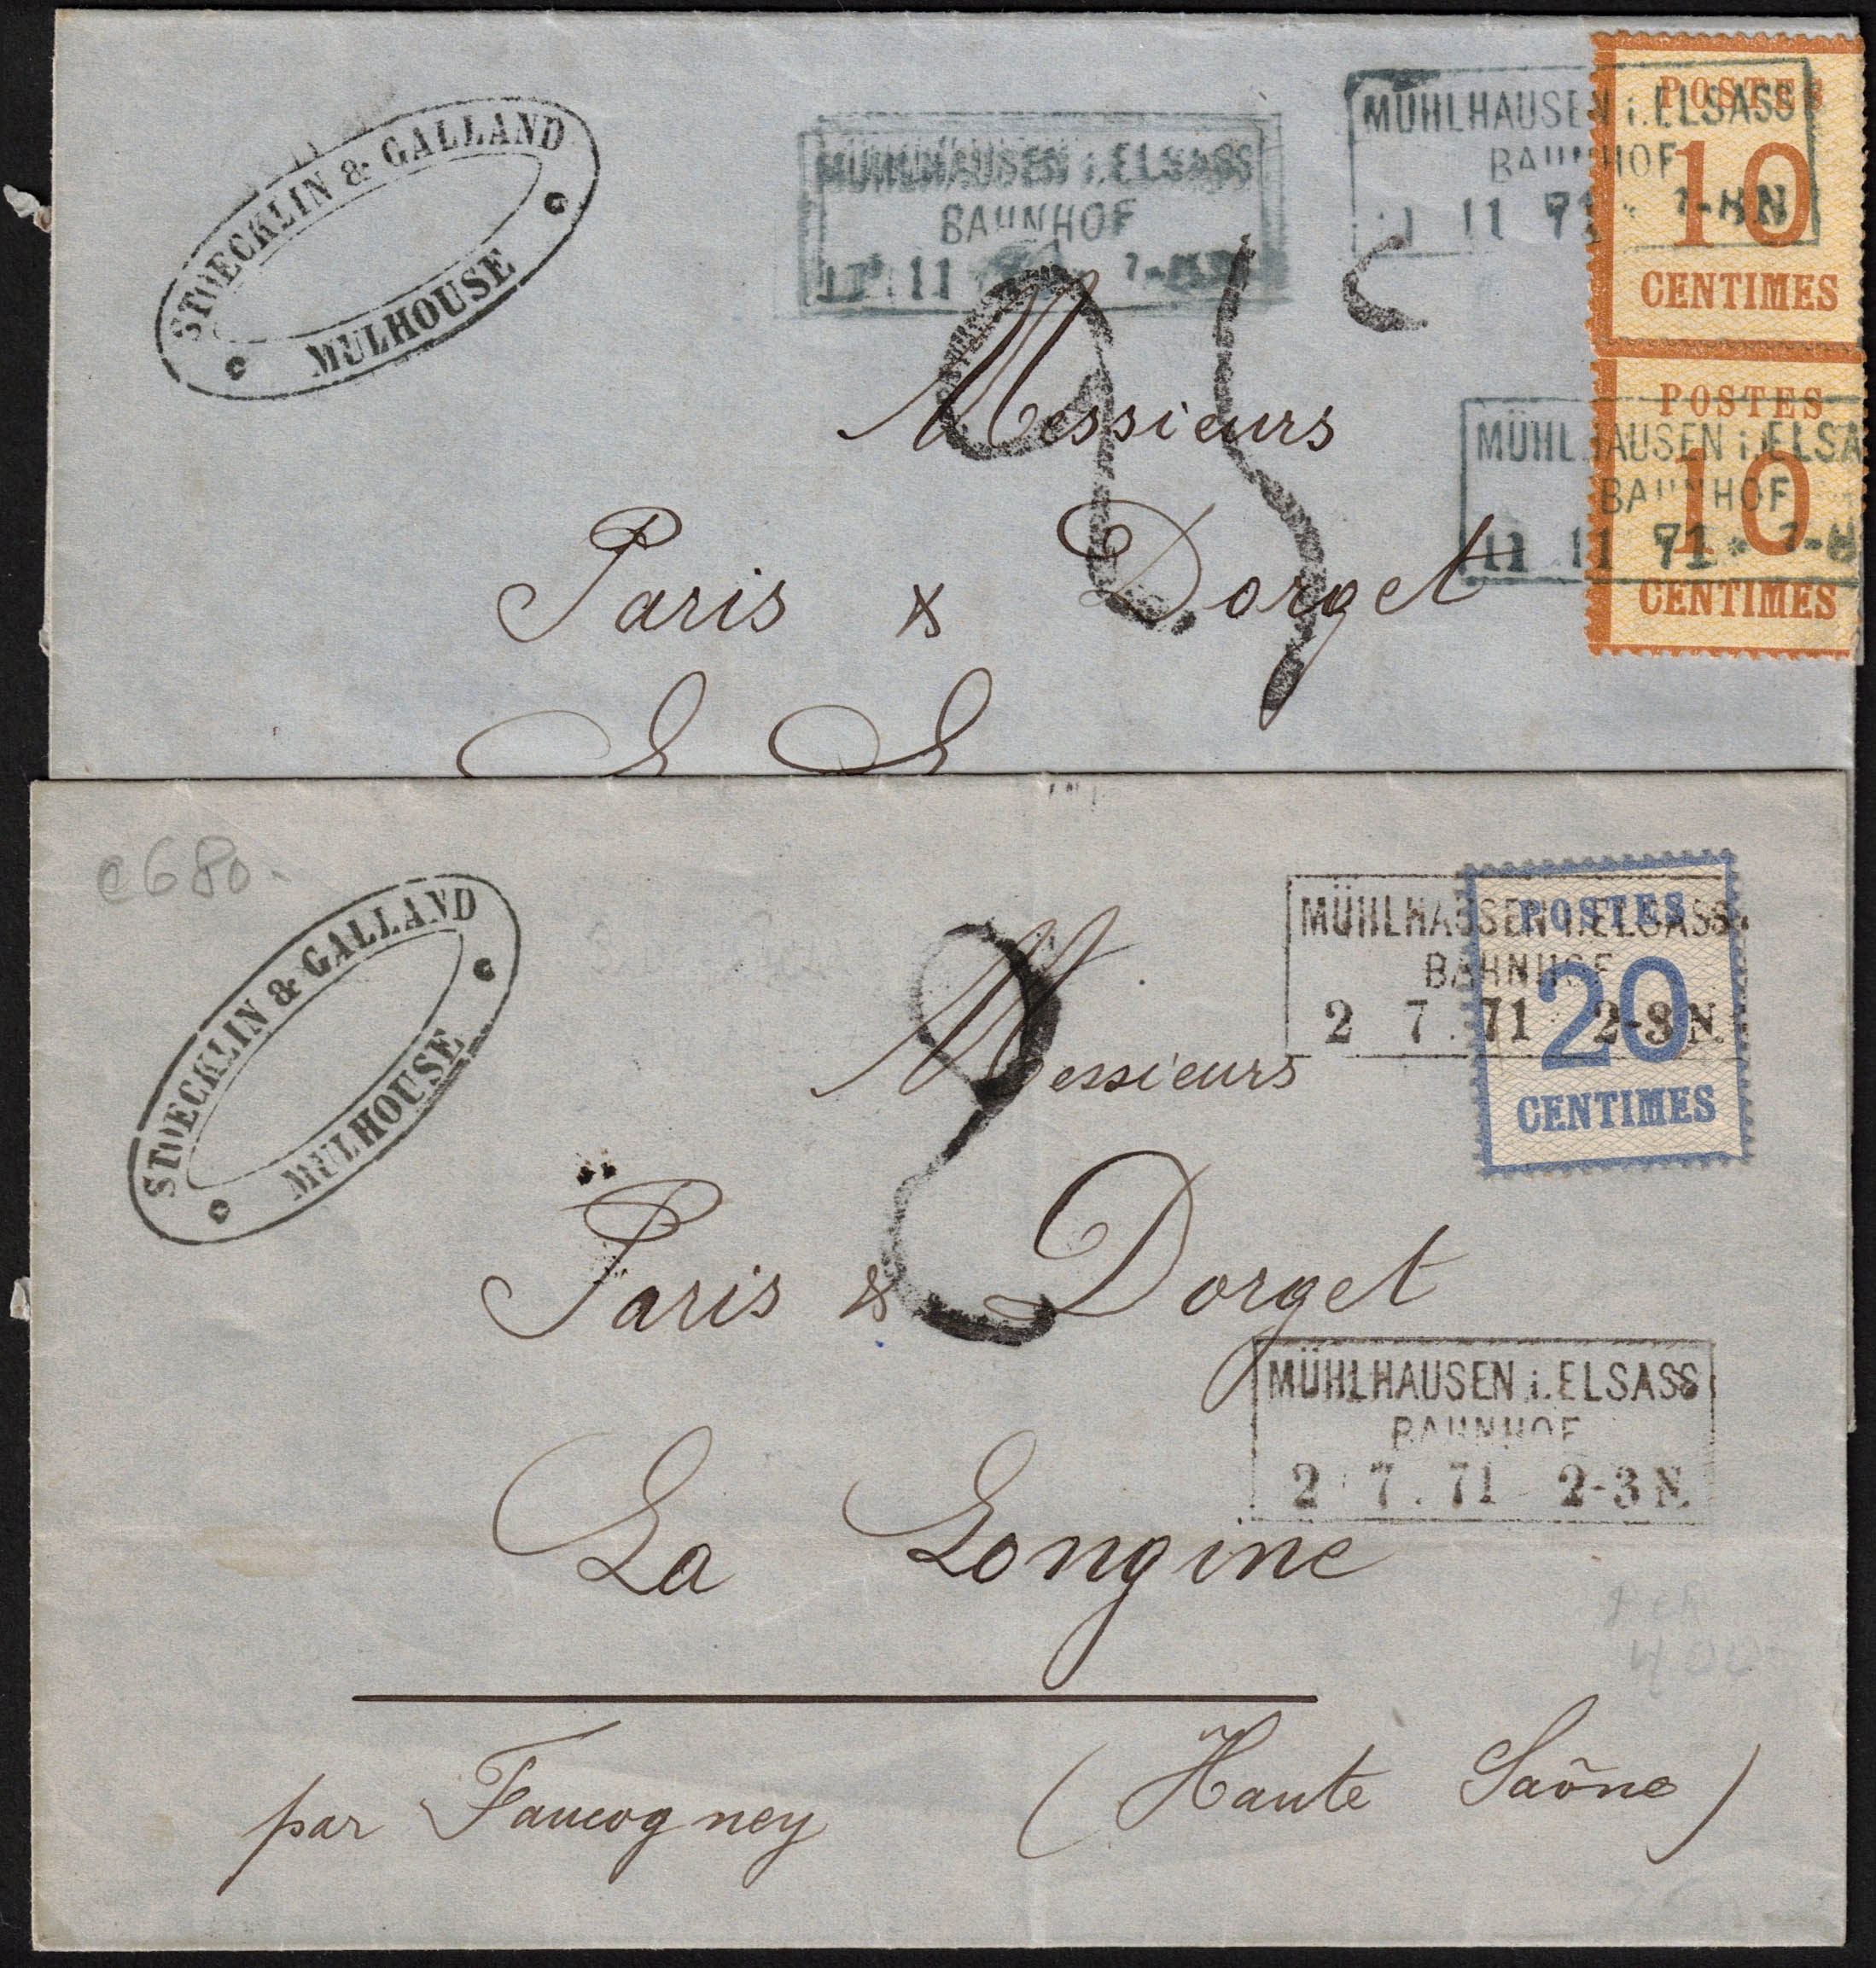 STŒCKLIN & GALLAND
MULHOUSE
MÜHLHAUSEN i. ELSASS
BAHNHOF
11 11 7-8 N
MÜHLHAUSEN i. ELSASS
BAHNHOF
11 11 71 * 7-8 N
POSTES
10
CENTIMES
MÜHLHAUSEN i. ELSA
BAHNHOF
11 11 71 * 7-8
POSTES
10
CENTIMES
25 c
Messieurs
Paris & Dorget
L L
c 680.
STŒCKLIN & GALLAND
MULHOUSE
MÜHLHAUSEN i. ELSASS.
BAHNHOF
2 7. 71 2-3 N.
POSTES
20
CENTIMES
2
Messieurs
Paris & Dorget
MÜHLHAUSEN i. ELSASS
BAHNHOF
2 7. 71 2-3 N.
La Longine
400
par Faucogney (Haute Saône)